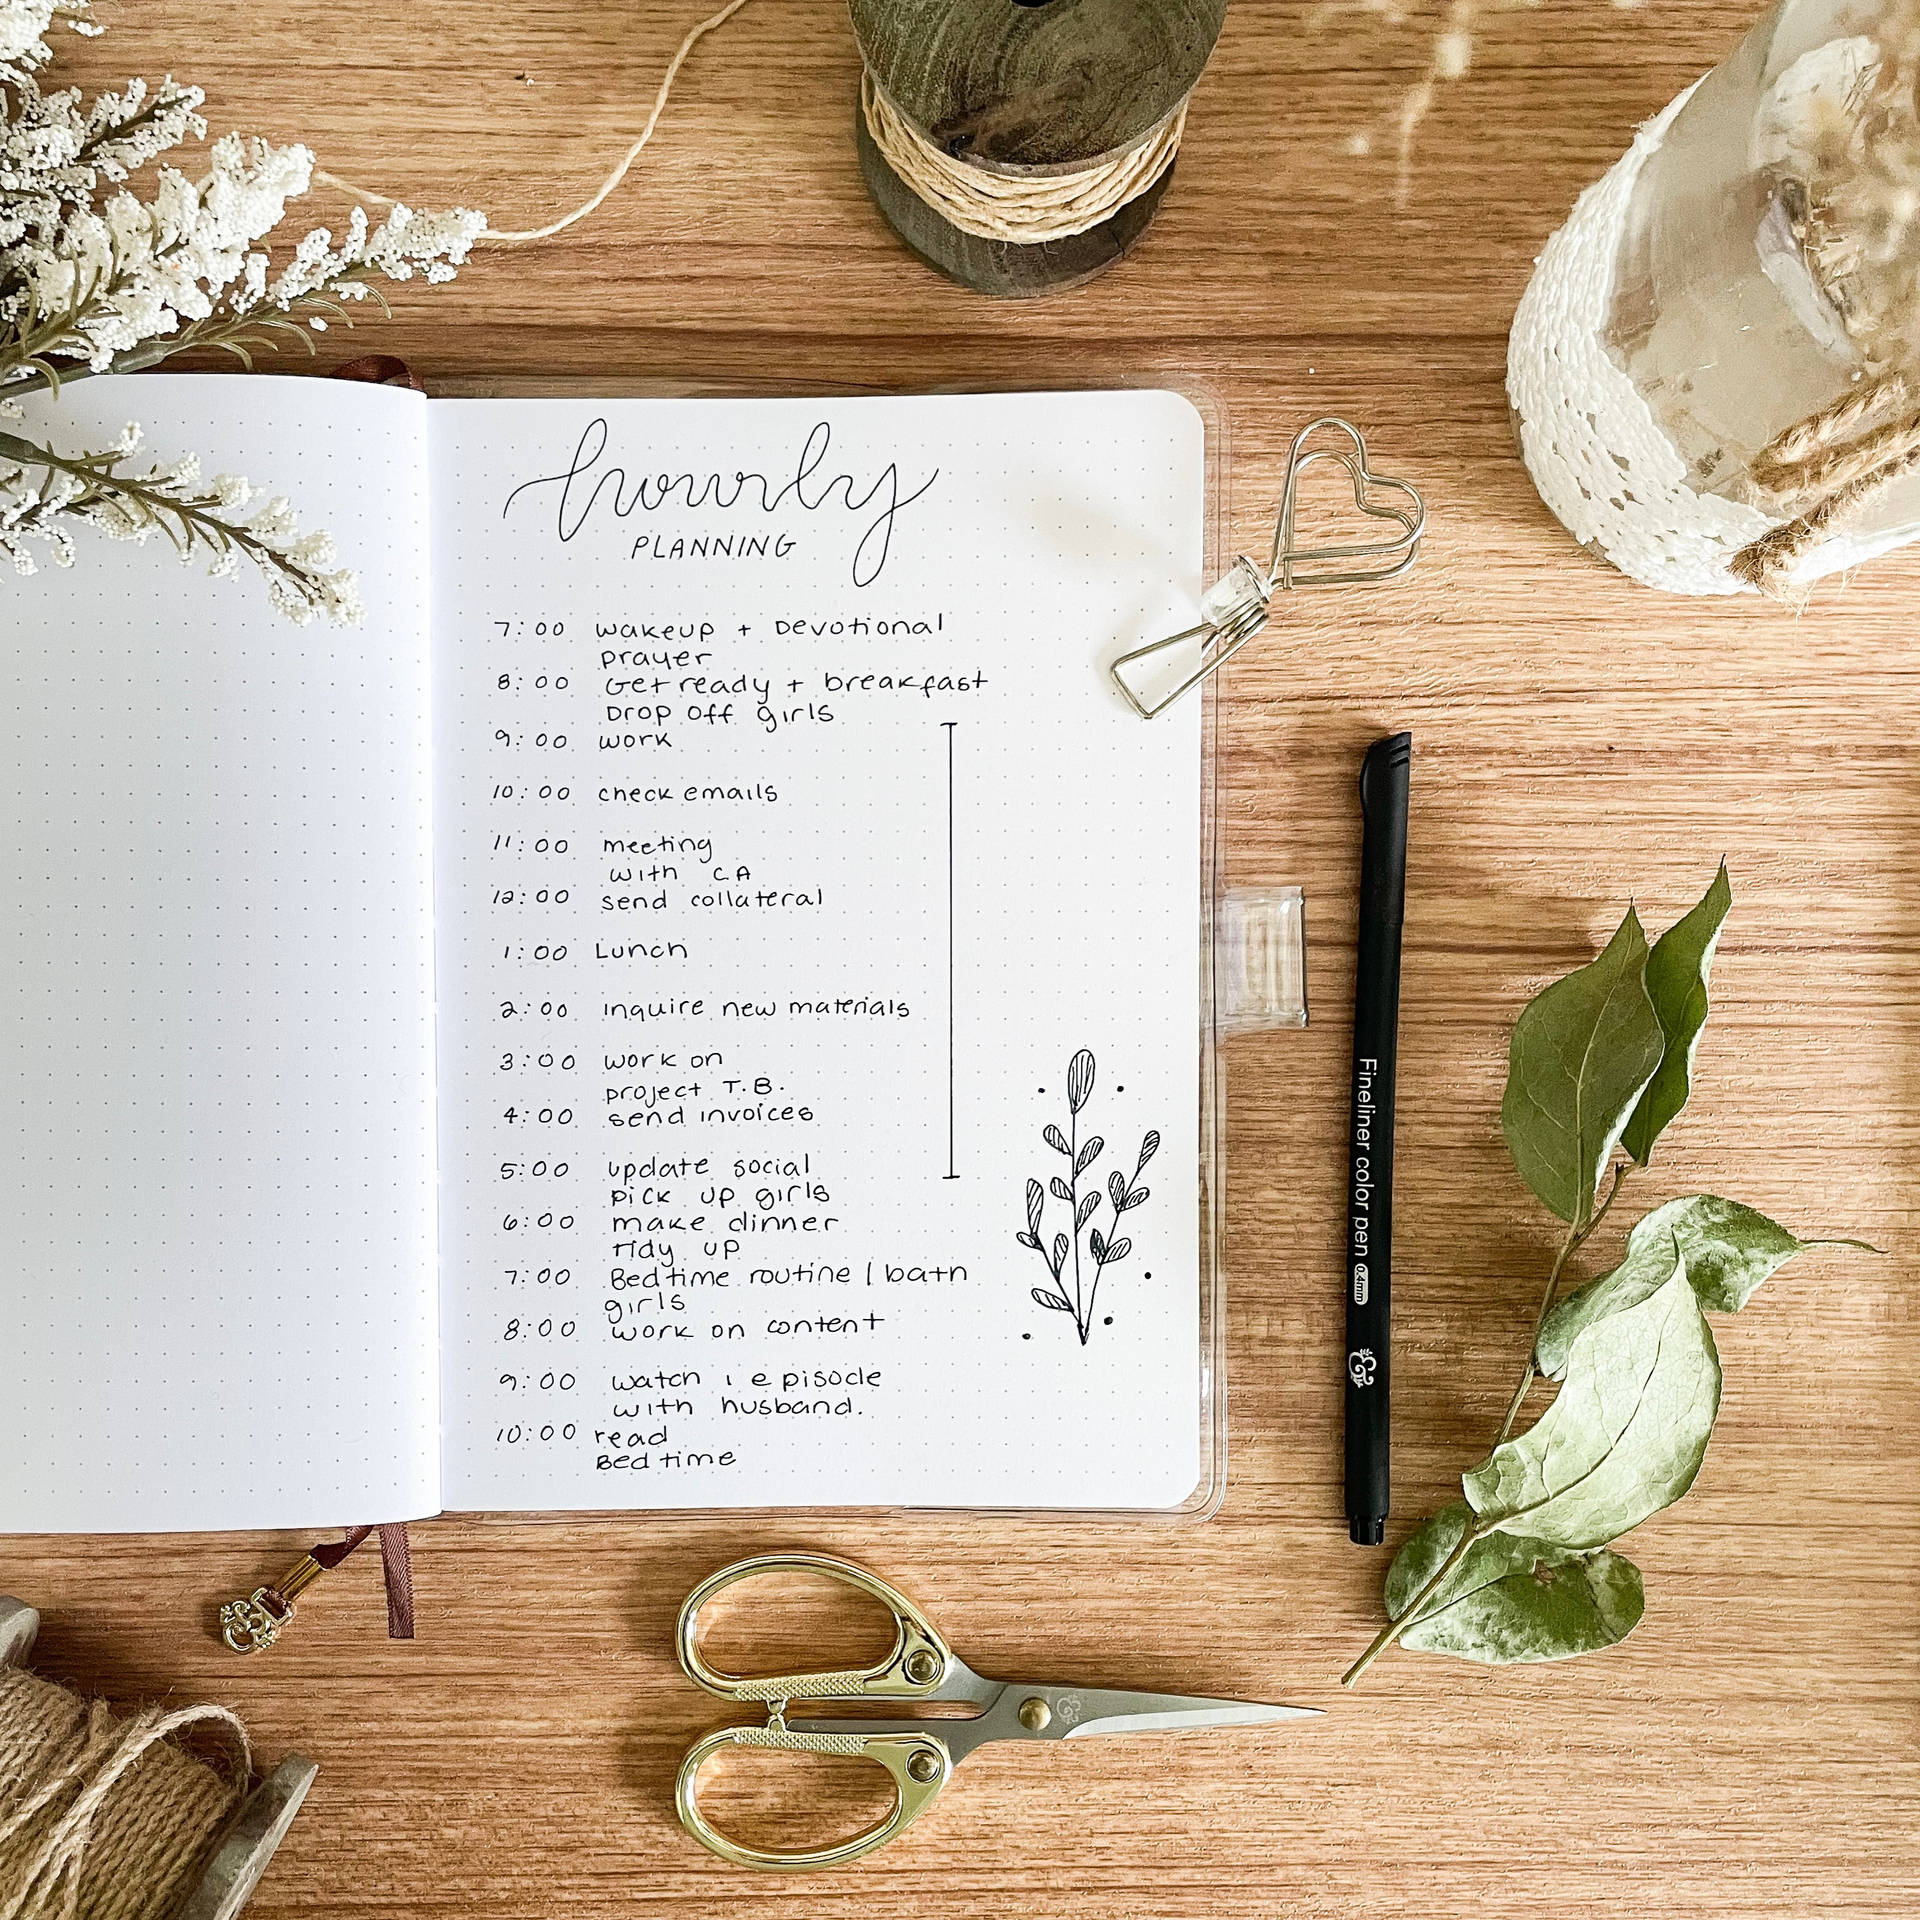 hourly
PLANNING
7:00 wakeup + Devotional
prayer
8:00 Get ready + breakfast
Drop off girls
9:00 work
10:00 check emails
11:00 meeting
with C.A
12:00 send collateral
1:00 Lunch
2:00 inquire new materials
3:00 work on
project T.B.
4:00 send invoices
5:00 update social
pick up girls
6:00 make dinner
tidy up
7:00 Bedtime routine / bath
girls
8:00 work on content
9:00 watch 1 episode
with husband.
10:00 read
Bedtime
Fineliner color pen 0.4mm